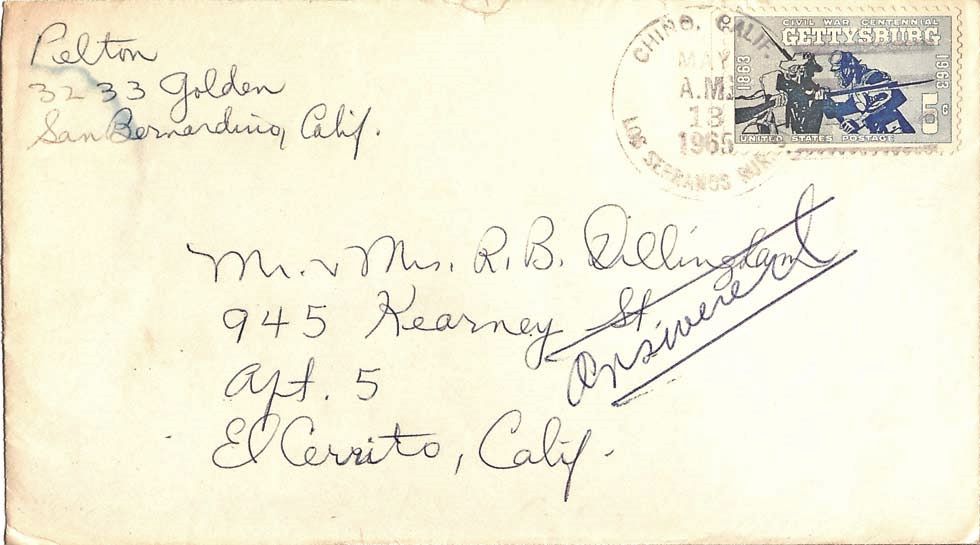 Pelton
3233 Golden
San Bernardino, Calif.
CHINO, CALIF.
MAY
A.M.
13
1965
LOS SERRANOS RUR.
CIVIL WAR CENTENNIAL
GETTYSBURG
1863
1963
5c
UNITED STATES POSTAGE
Mr. & Mrs. R. B. Dillingham
945 Kearney St
Apt. 5
El Cerrito, Calif.
Answered